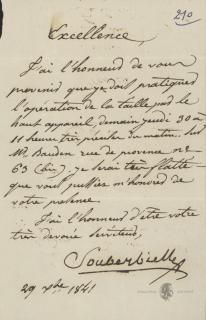 210
Excellence,
J'ai l'honneur de vous
prevenir que je dois pratiquer
l'opération de la taille par le
haut appareil, demain jeudi 30 à
11 heures très précises du matin. sur
Mr. Bauden rue de provence nº
63 (bis), je serai très flatté
que vous puissiez m'honorer de
votre présence.
J'ai l'honneur d'être votre
très devoué serviteur,
Souberbielle
29 xbre 1841